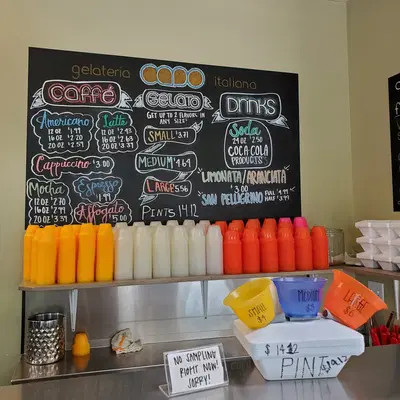 gelateria CAPO italiana
CAFFÉ
Americano
12 OZ $1.99
16 OZ $2.20
20 OZ $2.51
Latte
12 OZ $2.43
16 OZ $2.63
20 OZ $3.35
CAPPUCCINO $3.00
MOCHA
12 OZ $2.70
Espresso
$1.99
Affogato $5.00
GELATO
GET UP TO 2 FLAVORS IN
ANY SIZE!
SMALL $3.71
MEDIUM $4.69
LARGE $5.56
PINTS 14.12
DRINKS
Soda
24 OZ $2.50
COCA-COLA
PRODUCTS
LIMONATA/ARANCIATA
$3.00
SAN PELLEGRINO FULL 4.99
HALF $3.99
SMALL
$4
MEDIUM
$5
LARGE
$6
$14.12
PINTS
NO SAMPLING
RIGHT NOW!
SORRY!